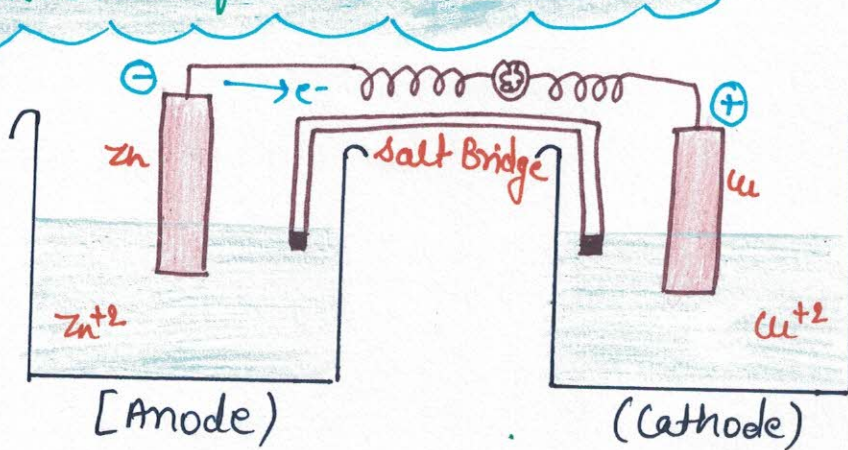 ⊖ → e- ⊕
Zn Salt Bridge Cu
Zn+2 Cu+2
[Anode) (Cathode)